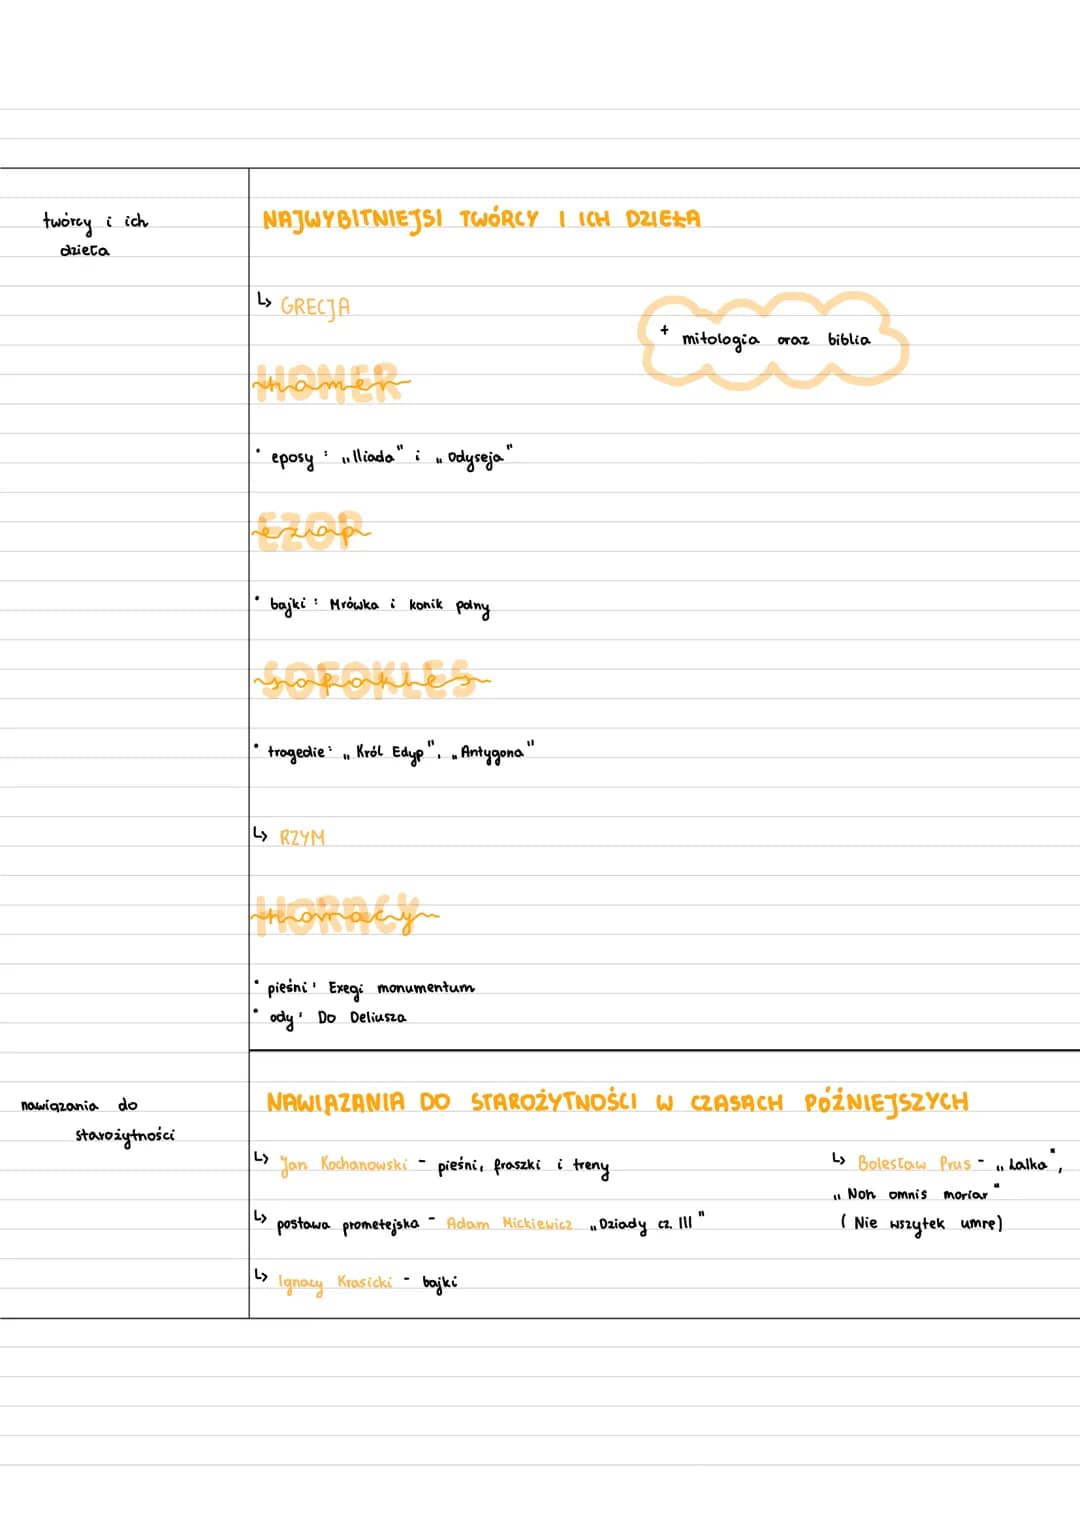 twórcy i ich
dzieła
NAJWYBITNIEJSI TWÓRCY I ICH DZIEŁA
↳ GRECJA
+ mitologia oraz biblia
HOMER
homer
• eposy : „Iliada" i „Odyseja"
EZOP
ezop
• bajki : Mrówka i konik polny
SOFOKLES
sofokles
• tragedie : „Król Edyp", „Antygona"
↳ RZYM
HORACY
horacy
• pieśni : Exegi monumentum
• ody : Do Deliusza
nawiązania do
starożytności
NAWIĄZANIA DO STAROŻYTNOŚCI W CZASACH PÓŹNIEJSZYCH
↳ Jan Kochanowski - pieśni, fraszki i treny
↳ postawa prometejska - Adam Mickiewicz „Dziady cz. III"
↳ Ignacy Krasicki - bajki
↳ Bolesław Prus - „Lalka",
„Non omnis moriar"
(Nie wszytek umrę)